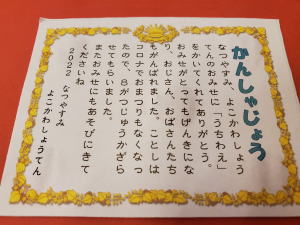 かんしゃじょう
なつやすみ、よこかわしょう
てんのおみせに「うちわえ」
をかいてくれてありがとう。
おみせがとってもげんきにな
り、おじさん、おばさんたち
もがんばれました。ことしは
コロナでおまつりもなくなっ
たので、8がつじゅうかざら
せてもらいました。
またおみせにもあそびにきて
くださいね
2022 なつやすみ
よこかわしょうてん